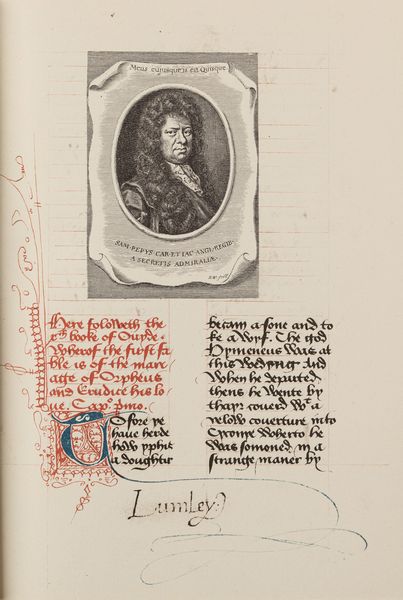 Mens cujusque is est Quisque.
SAM. PEPYS CAR. ET IAC. ANGL. REGIB.
A SECRETIS ADMIRALIÆ.
Here foloweth the
xth booke of Ouyde.
Wherof the furst fa
ble is of the mari
age of Orpheus
and Erudice his lo
ue. Capo. pmo.
Tofore ye
haue herde
how yphis
a doughter
becam a sone and to
ke a wyf. The god
Hymeneus was at
this wedyng And
When he departed
thens he wente by
thayr couerd wt a
yelow couerture into
Cyconye wherto he
was somoned, in a
strange maner by
Lumley